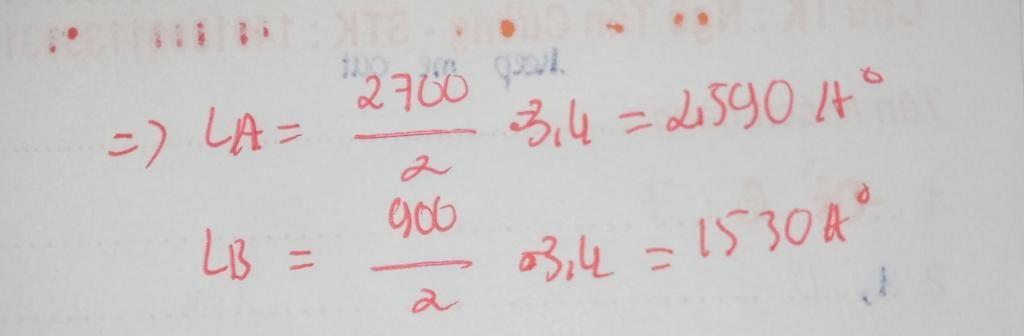 => LA = 2700/2 .3,4 = 2590 A°
LB = 900/2 .3,4 = 1530 A°